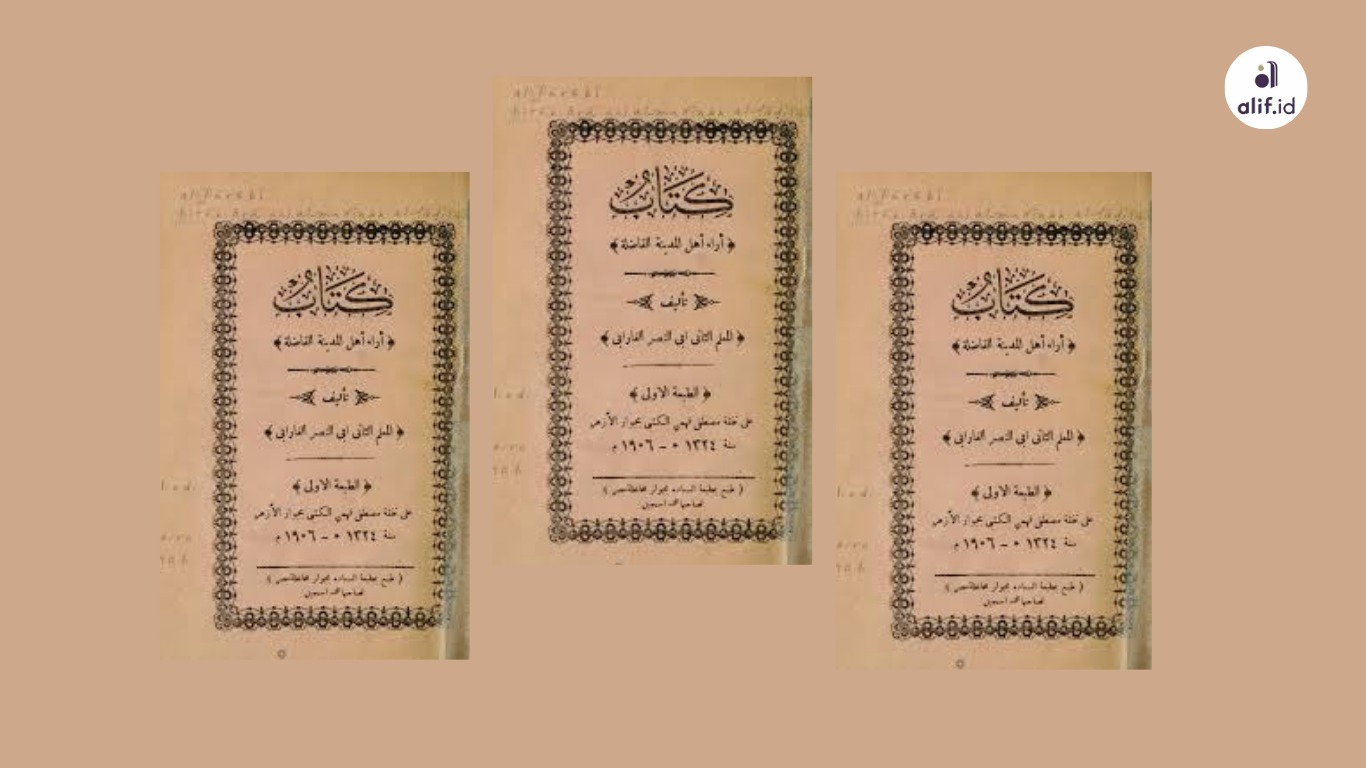 alif.id
كِتَابُ
﴿ أراء أهل المدينة الفاضلة ﴾
تأليف
﴿ المعلم الثانى ابى النصر الفارابى ﴾
﴿ الطبعة الاولى ﴾
على نفقة مصطفى فهمي الكتبى بجوار الأزهر
سنة ١٣٢٤ ه – ١٩٠٦ م
( طبع بمطبعة السعاده بجوار محافظة مصر )
لصاحبها محمد اسمعيل
كِتَابُ
﴿ أراء أهل المدينة الفاضلة ﴾
تأليف
﴿ المعلم الثانى ابى النصر الفارابى ﴾
﴿ الطبعة الاولى ﴾
على نفقة مصطفى فهمي الكتبى بجوار الأزهر
سنة ١٣٢٤ ه – ١٩٠٦ م
( طبع بمطبعة السعاده بجوار محافظة مصر )
لصاحبها محمد اسمعيل
كِتَابُ
﴿ أراء أهل المدينة الفاضلة ﴾
تأليف
﴿ المعلم الثانى ابى النصر الفارابى ﴾
﴿ الطبعة الاولى ﴾
على نفقة مصطفى فهمي الكتبى بجوار الأزهر
سنة ١٣٢٤ ه – ١٩٠٦ م
( طبع بمطبعة السعاده بجوار محافظة مصر )
لصاحبها محمد اسمعيل